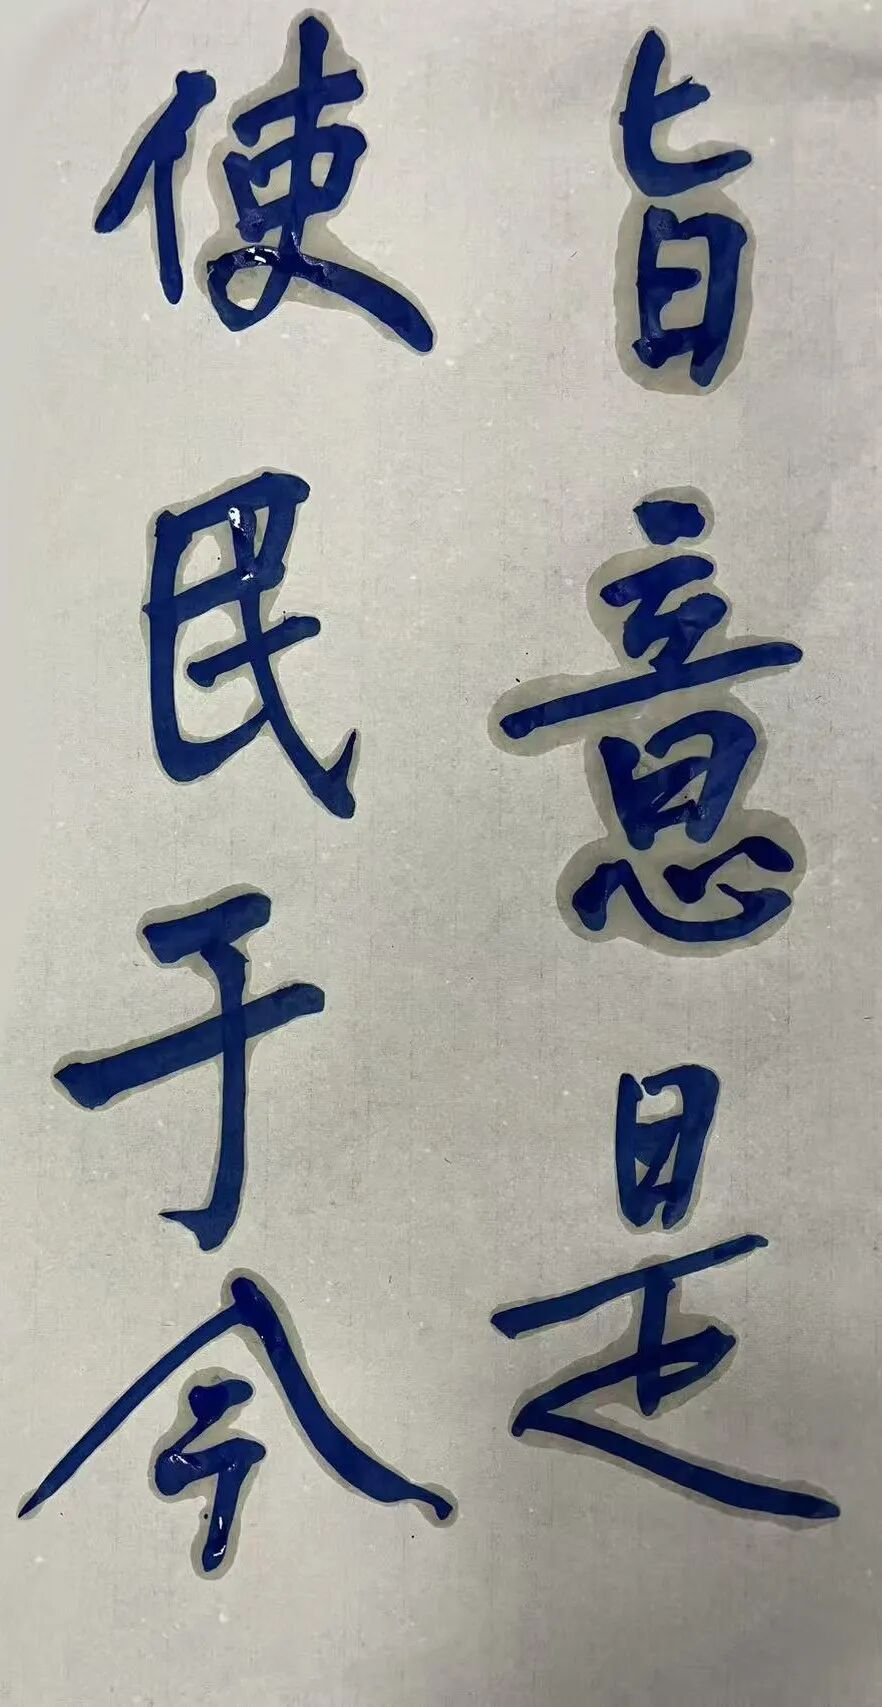 旨意是
使民于今